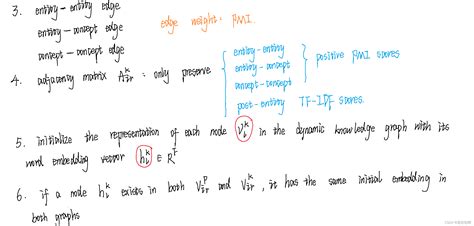 3. entity-entity edge
edge weight: PMI.
entity-concept edge
concept-concept edge
4. adjacency matrix A_{ir}^{k}: only preserve
entity-entity
entity-concept
concept-concept
positive PMI scores
post-entity TF-IDF scores.
5. initialize the representation of each node v_i^k in the dynamic knowledge graph with its
word embedding vector h_i^k ∈ R^F
6. if a node h_i^k exists in both V_{ir}^P and V_{ir}^k, it has the same initial embedding in
both graphs